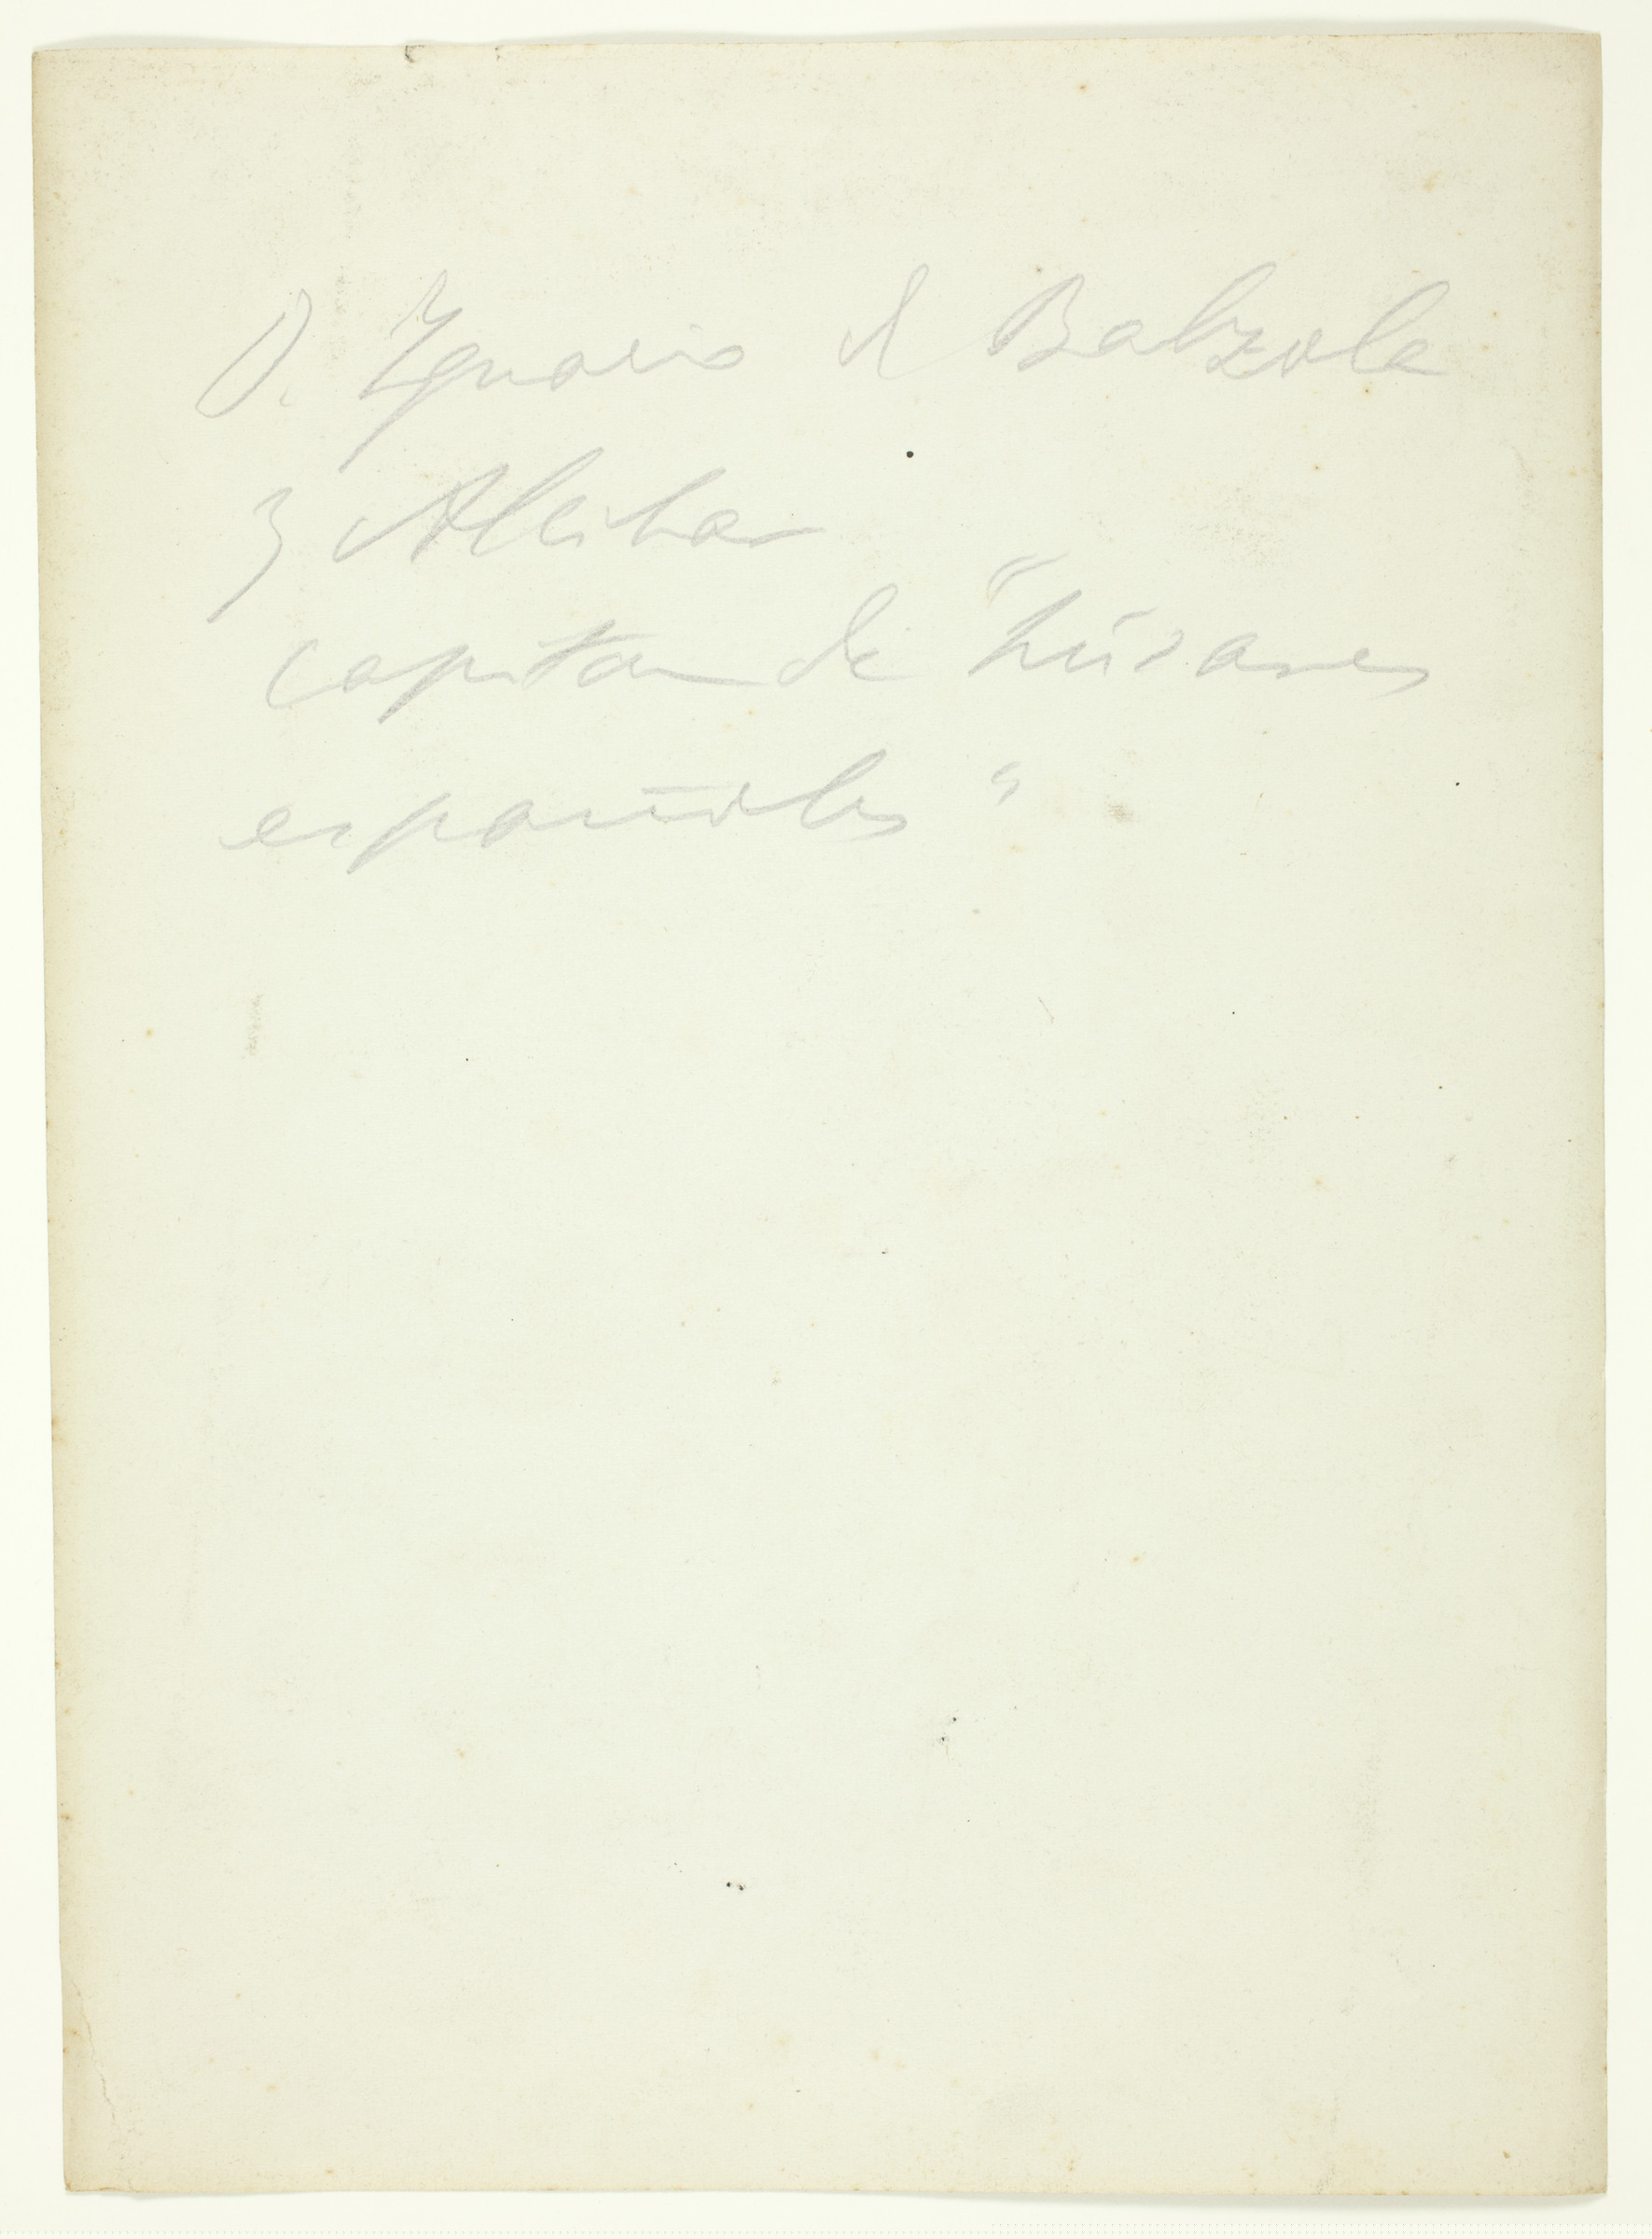 D. Ignacio de Balzola
y Allibar
capitan de "húsares
españoles"